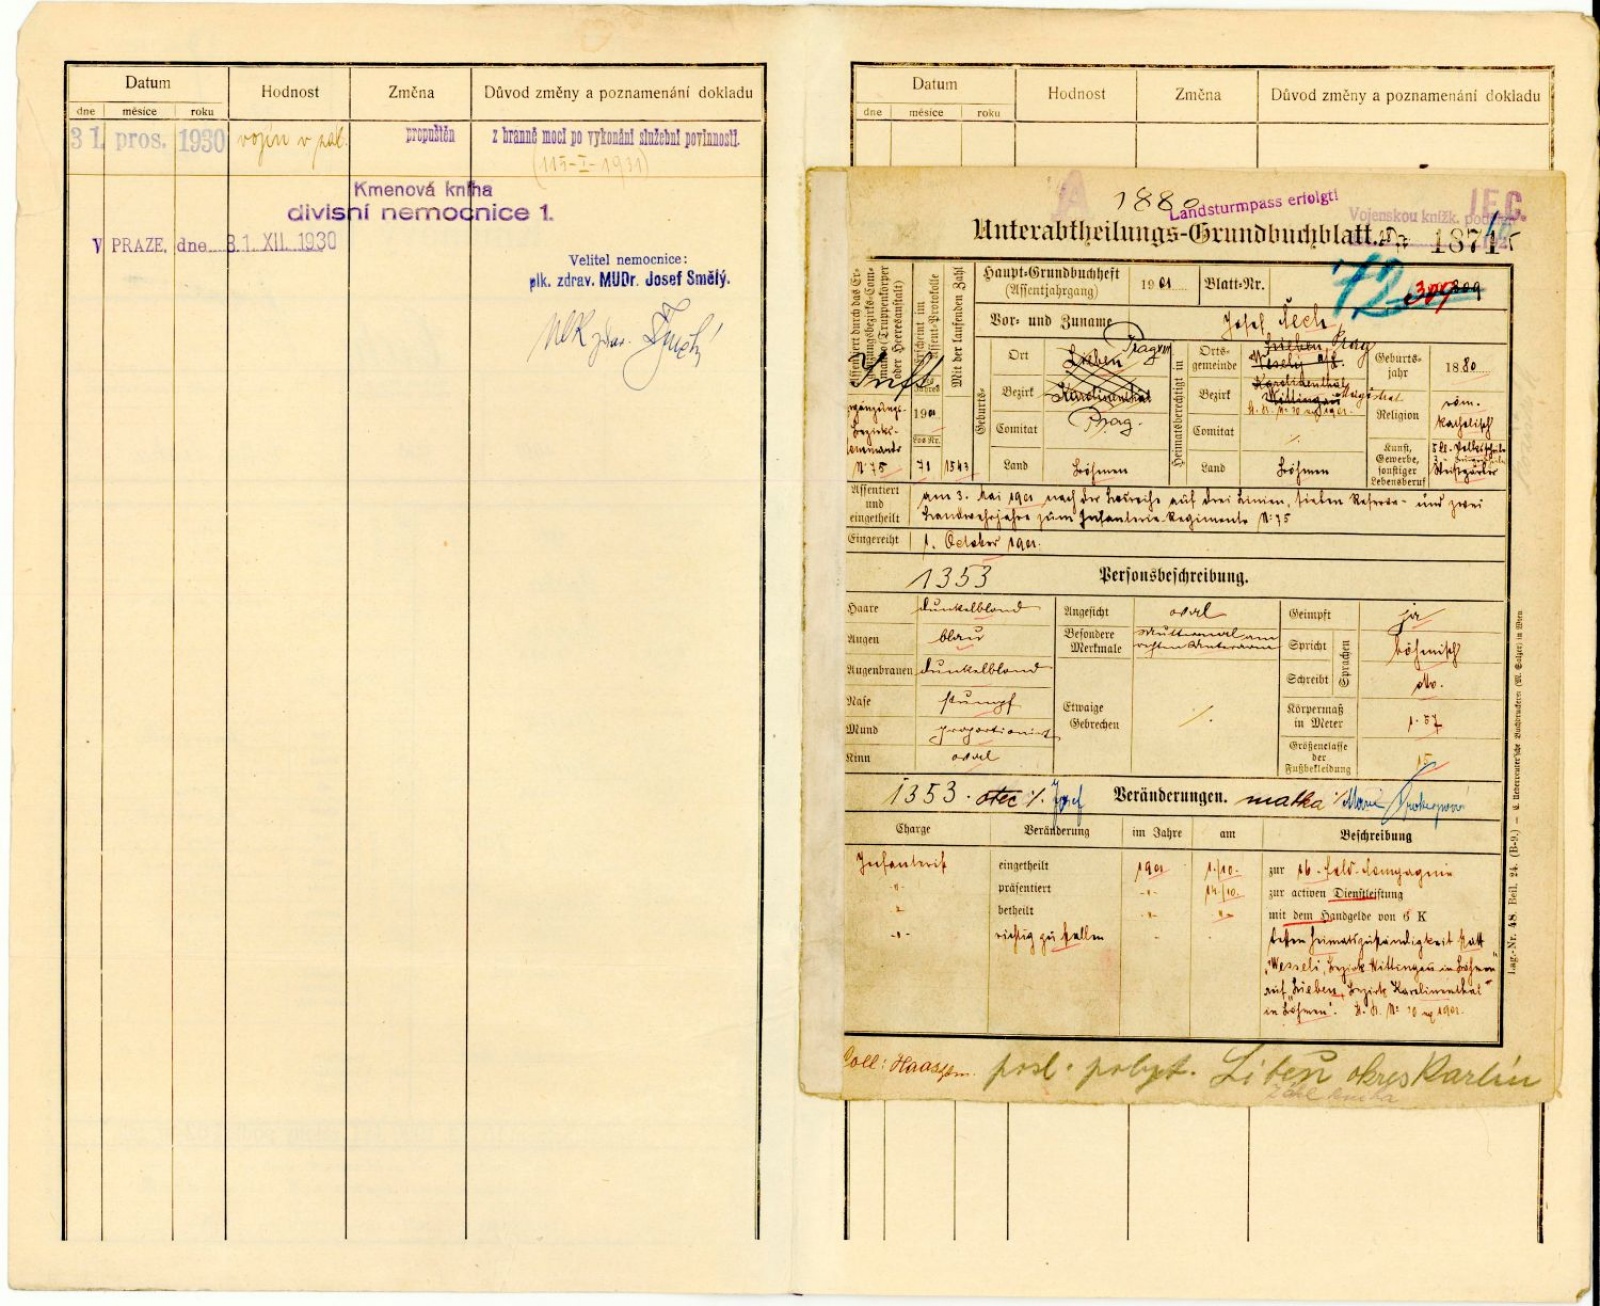 Datum Hodnost Změna Důvod změny a poznamenání dokladu
dne měsíce roku
31 pros. 1930 vojín v zál. propuštěn z branné moci po vykonání služební povinnosti.
(115-I-1931)
Kmenová kniha
divisní nemocnice 1.
V PRAZE, dne 31. XII. 1930
Velitel nemocnice:
plk. zdrav. MUDr. Josef Smělý.
Datum Hodnost Změna Důvod změny a poznamenání dokladu
dne měsíce roku
1880 Landsturmpass erfolgt!
Vojenskou knížk.
Unterabtheilungs-Grundbuchblatt.
Haupt-Grundbuchheft (Assentjahrgang) 1901 Blatt-Nr. 72
Vor- und Zuname Josef Čech
Assent-Protokolle
Mit der laufenden Zahl
Geburts-
Ort Lieben Prag
Bezirk Karolinenthal
Comitat Prag.
Land Böhmen
Heimatsberechtigt in
Ortsgemeinde Lieben, Prag
Wesseli a/L.
Bezirk Karolinenthal
Wittingau Magistrat
Comitat %
Land Böhmen
Geburtsjahr 1880
Religion röm. katholisch
Kunst, Gewerbe, sonstiger Lebensberuf Weißgärber
Nr 75 71 1543
Assentiert und eingetheilt am 3. Mai 1901 nach der Losreihe auf drei Linien, sieben Reserve- und zwei
Landwehrjahre zum Infanterie-Regimente Nr 75
Eingereiht 1. October 1901.
1353 Personsbeschreibung.
Haare dunkelblond
Augen blau
Augenbrauen dunkelblond
Nase stumpf
Mund proportionirt
Kinn oval
Angesicht oval
Besondere Merkmale Muttermal am
rechten Unterarm
Etwaige Gebrechen %
Geimpft ja
Sprachen
Spricht böhmisch
Schreibt dto.
Körpermaß in Meter 1.57
Größenclasse der Fußbekleidung 15
1353. otec % Josef Veränderungen. matka % Marie
Charge Veränderung im Jahre am Beschreibung
Infanterist eingetheilt 1901 1/10. zur 16. Feld-Compagnie
-"- präsentiert -"- 14/10. zur activen Dienstleistung
betheilt -"- -"- mit dem Handgelde von 6 K
-"- richtig zu stellen - - dessen Heimatszuständigkeit statt
"Wesseli, Bezirk Wittingau in Böhmen"
auf "Lieben, Bezirk Karolinenthal
in Böhmen".
Coll: Haas
posl. pobyt. Libeň okres Karlín
Lag.-Nr. 48. Beil. 24. (B-9.) — C. Ueberreuter'sche Buchdruckerei (M. Salzer) in Wien.